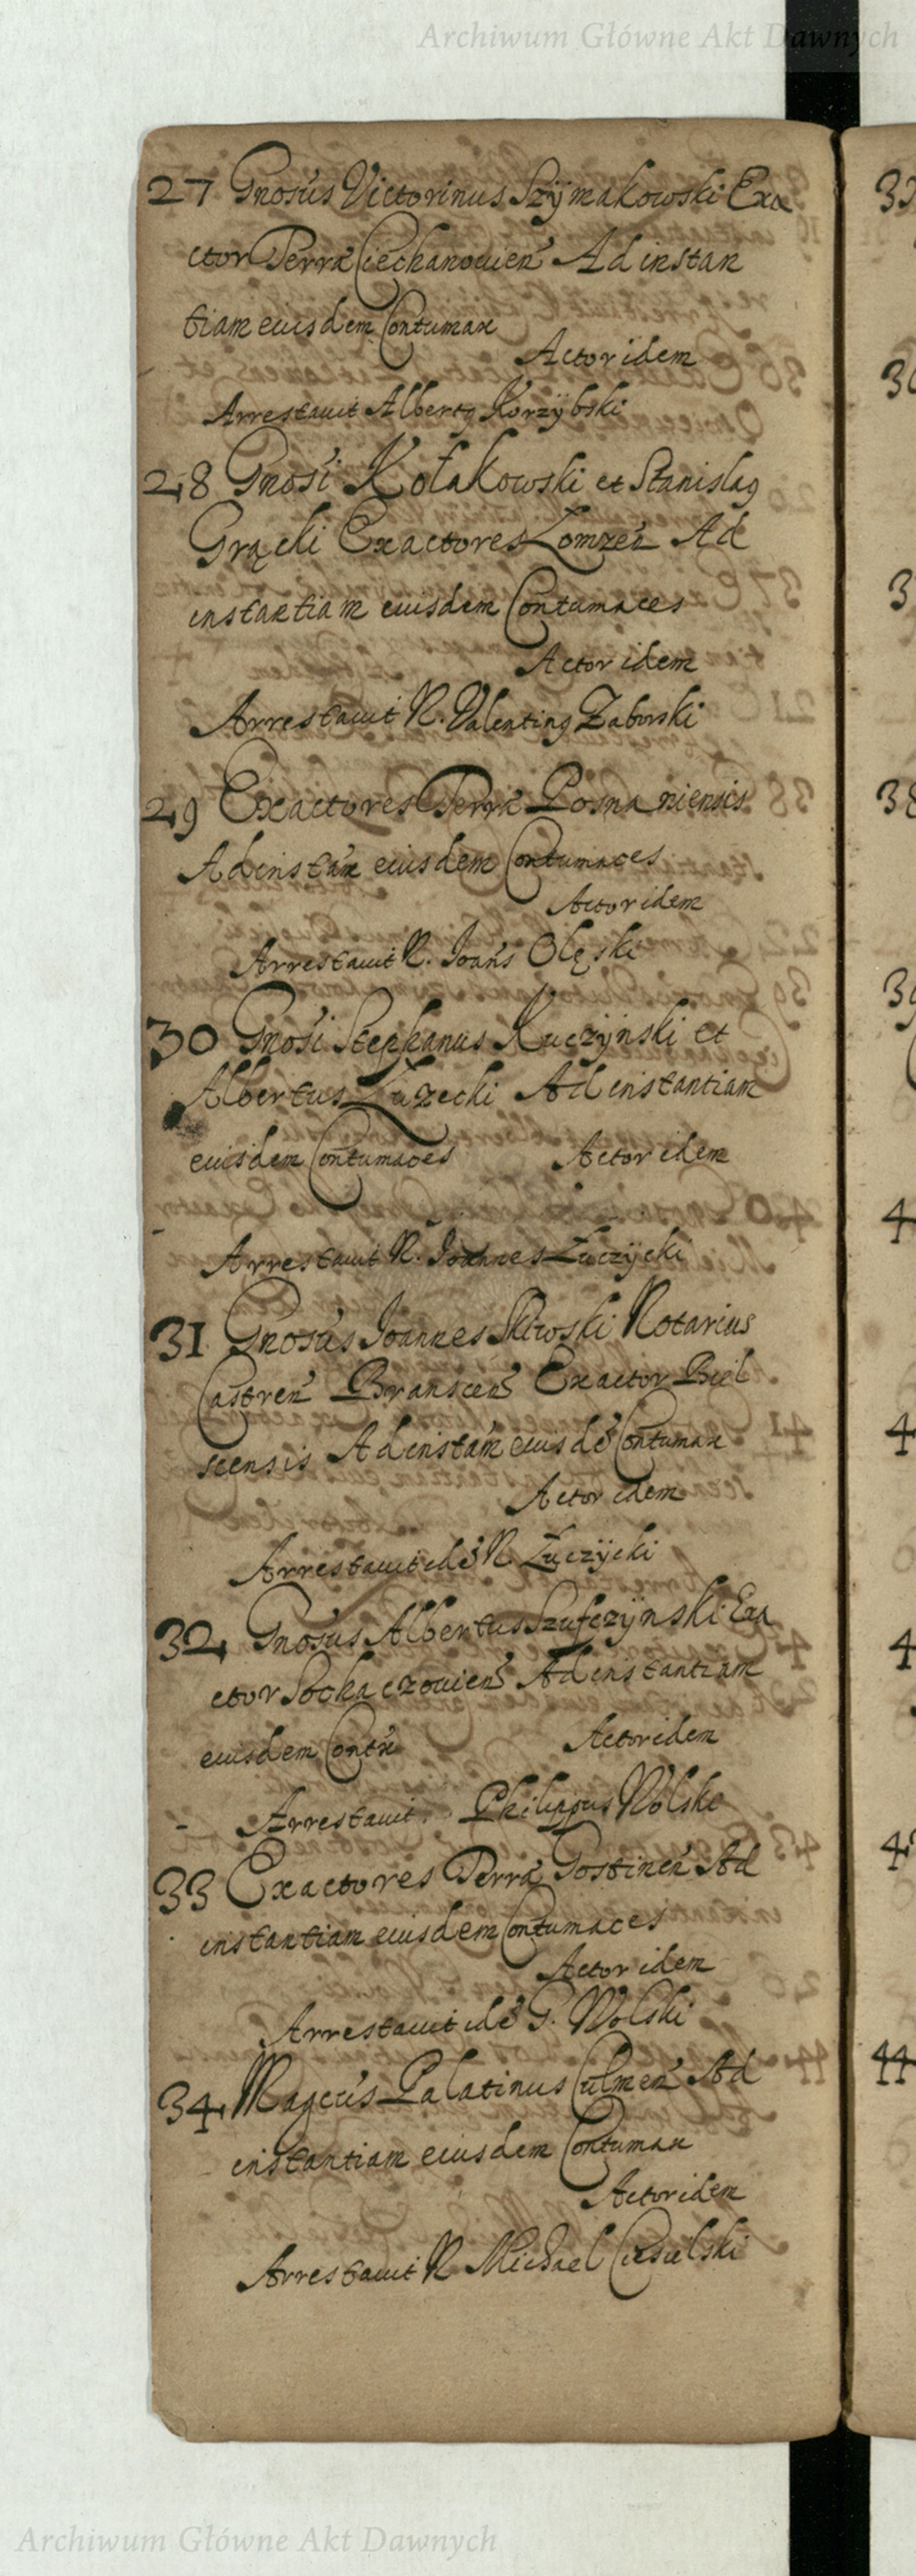 Archiwum Główne Akt Dawnych
27 Gnosus Victorinus Szÿmakowski Exa
ctor Terrae Ciechanouien Ad instan
tiam eiusdem Contumax
Actor idem
Arrestauit Albertq Korzÿbski
28 Gnosi Kołakowski et Stanislaq
Grącki Exactores Łomzen Ad
instantiam eiusdem Contumaces
Actor idem
Arrestauit N. Valentinq Zaborski
29 Exactores Terrae Posnaniensis
Ad instan eiusdem Contumaces
Actor idem
Arrestauit N. Joans Olęski
30 Gnosi Stephanus Kuczÿnski et
Albertus Łuzecki Ad instantiam
eiusdem Contumaces Actor idem
Arrestauit N. Joannes Łuczÿcki
31 Gnosus Joannes Notarius
Castren Branscen Exactor Biel
scensis Ad instam eiusde Contumax
Actor idem
Arrestauit ide N Łuczÿcki
32 Gnosus Albertus Szufczÿnski Exa
ctor Sochaczouien Ad instantiam
eiusdem Contx Actor idem
Arrestauit Philippus Wolski
33 Exactores Terrae Gostinen Ad
instantiam eiusdem Contumaces
Actor idem
Arrestauit ide G. Wolski
34 Magcus Palatinus Culmen Ad
instantiam eiusdem Contumax
Actor idem
Arrestauit N Michael Ciesielski
44
Archiwum Główne Akt Dawnych